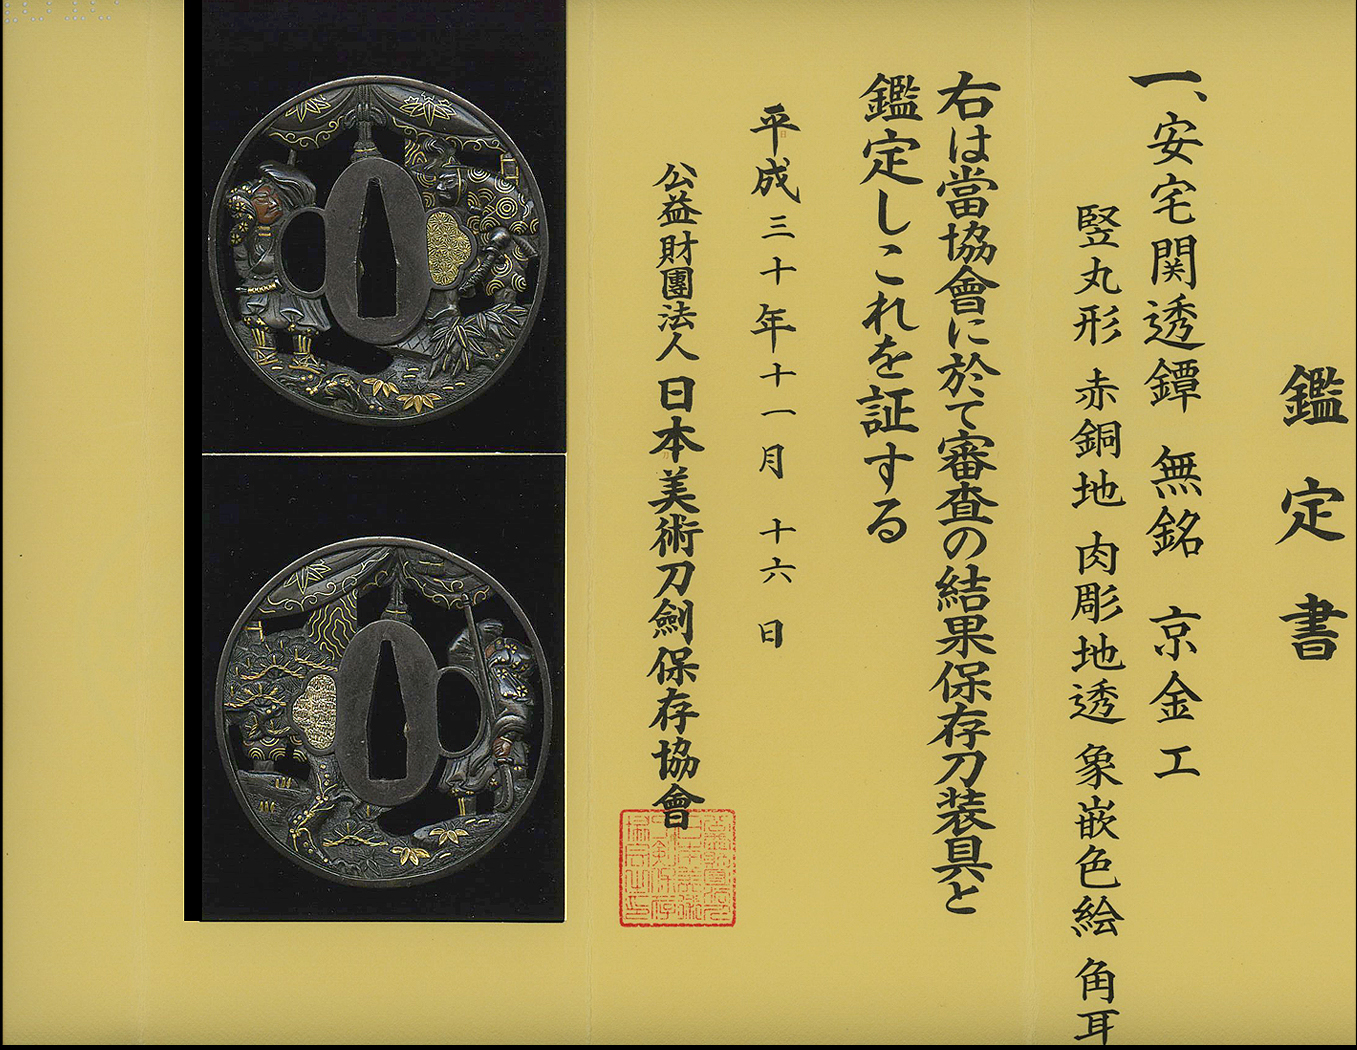 鑑定書
一、安宅関透鐔 無銘 京金工
竪丸形 赤銅地 肉彫地透 象嵌色絵 角耳
右は當協會に於て審査の結果保存刀装具と
鑑定しこれを証する
平成三十年十一月十六日
公益財團法人日本美術刀劍保存協會